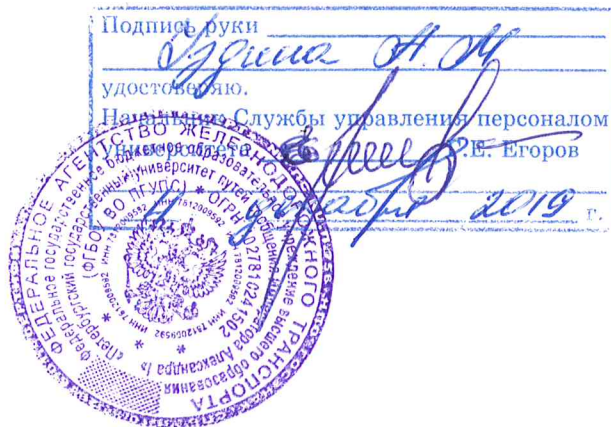 Подпись руки
А. М
удостоверяю.
Начальник Службы управления персоналом
Университета Г.Е. Егоров
декабря 2019 г.
ФЕДЕРАЛЬНОЕ АГЕНТСТВО ЖЕЛЕЗНОДОРОЖНОГО ТРАНСПОРТА
Федеральное государственное бюджетное образовательное учреждение высшего образования
«Петербургский государственный университет путей сообщения Императора Александра I»
(ФГБОУ ВО ПГУПС) * ОГРН 1027810241502
ИНН 7812009592